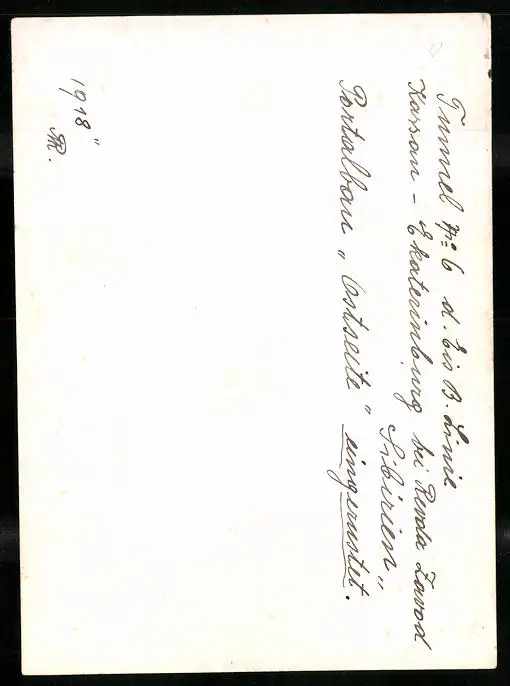 Tunnel No 6 d. Eis B. Linie
Kassan - Ekaterinburg bei Revda Zavod
Sibirien"
Portalbau „Ostseite" eingerüstet.
1918"